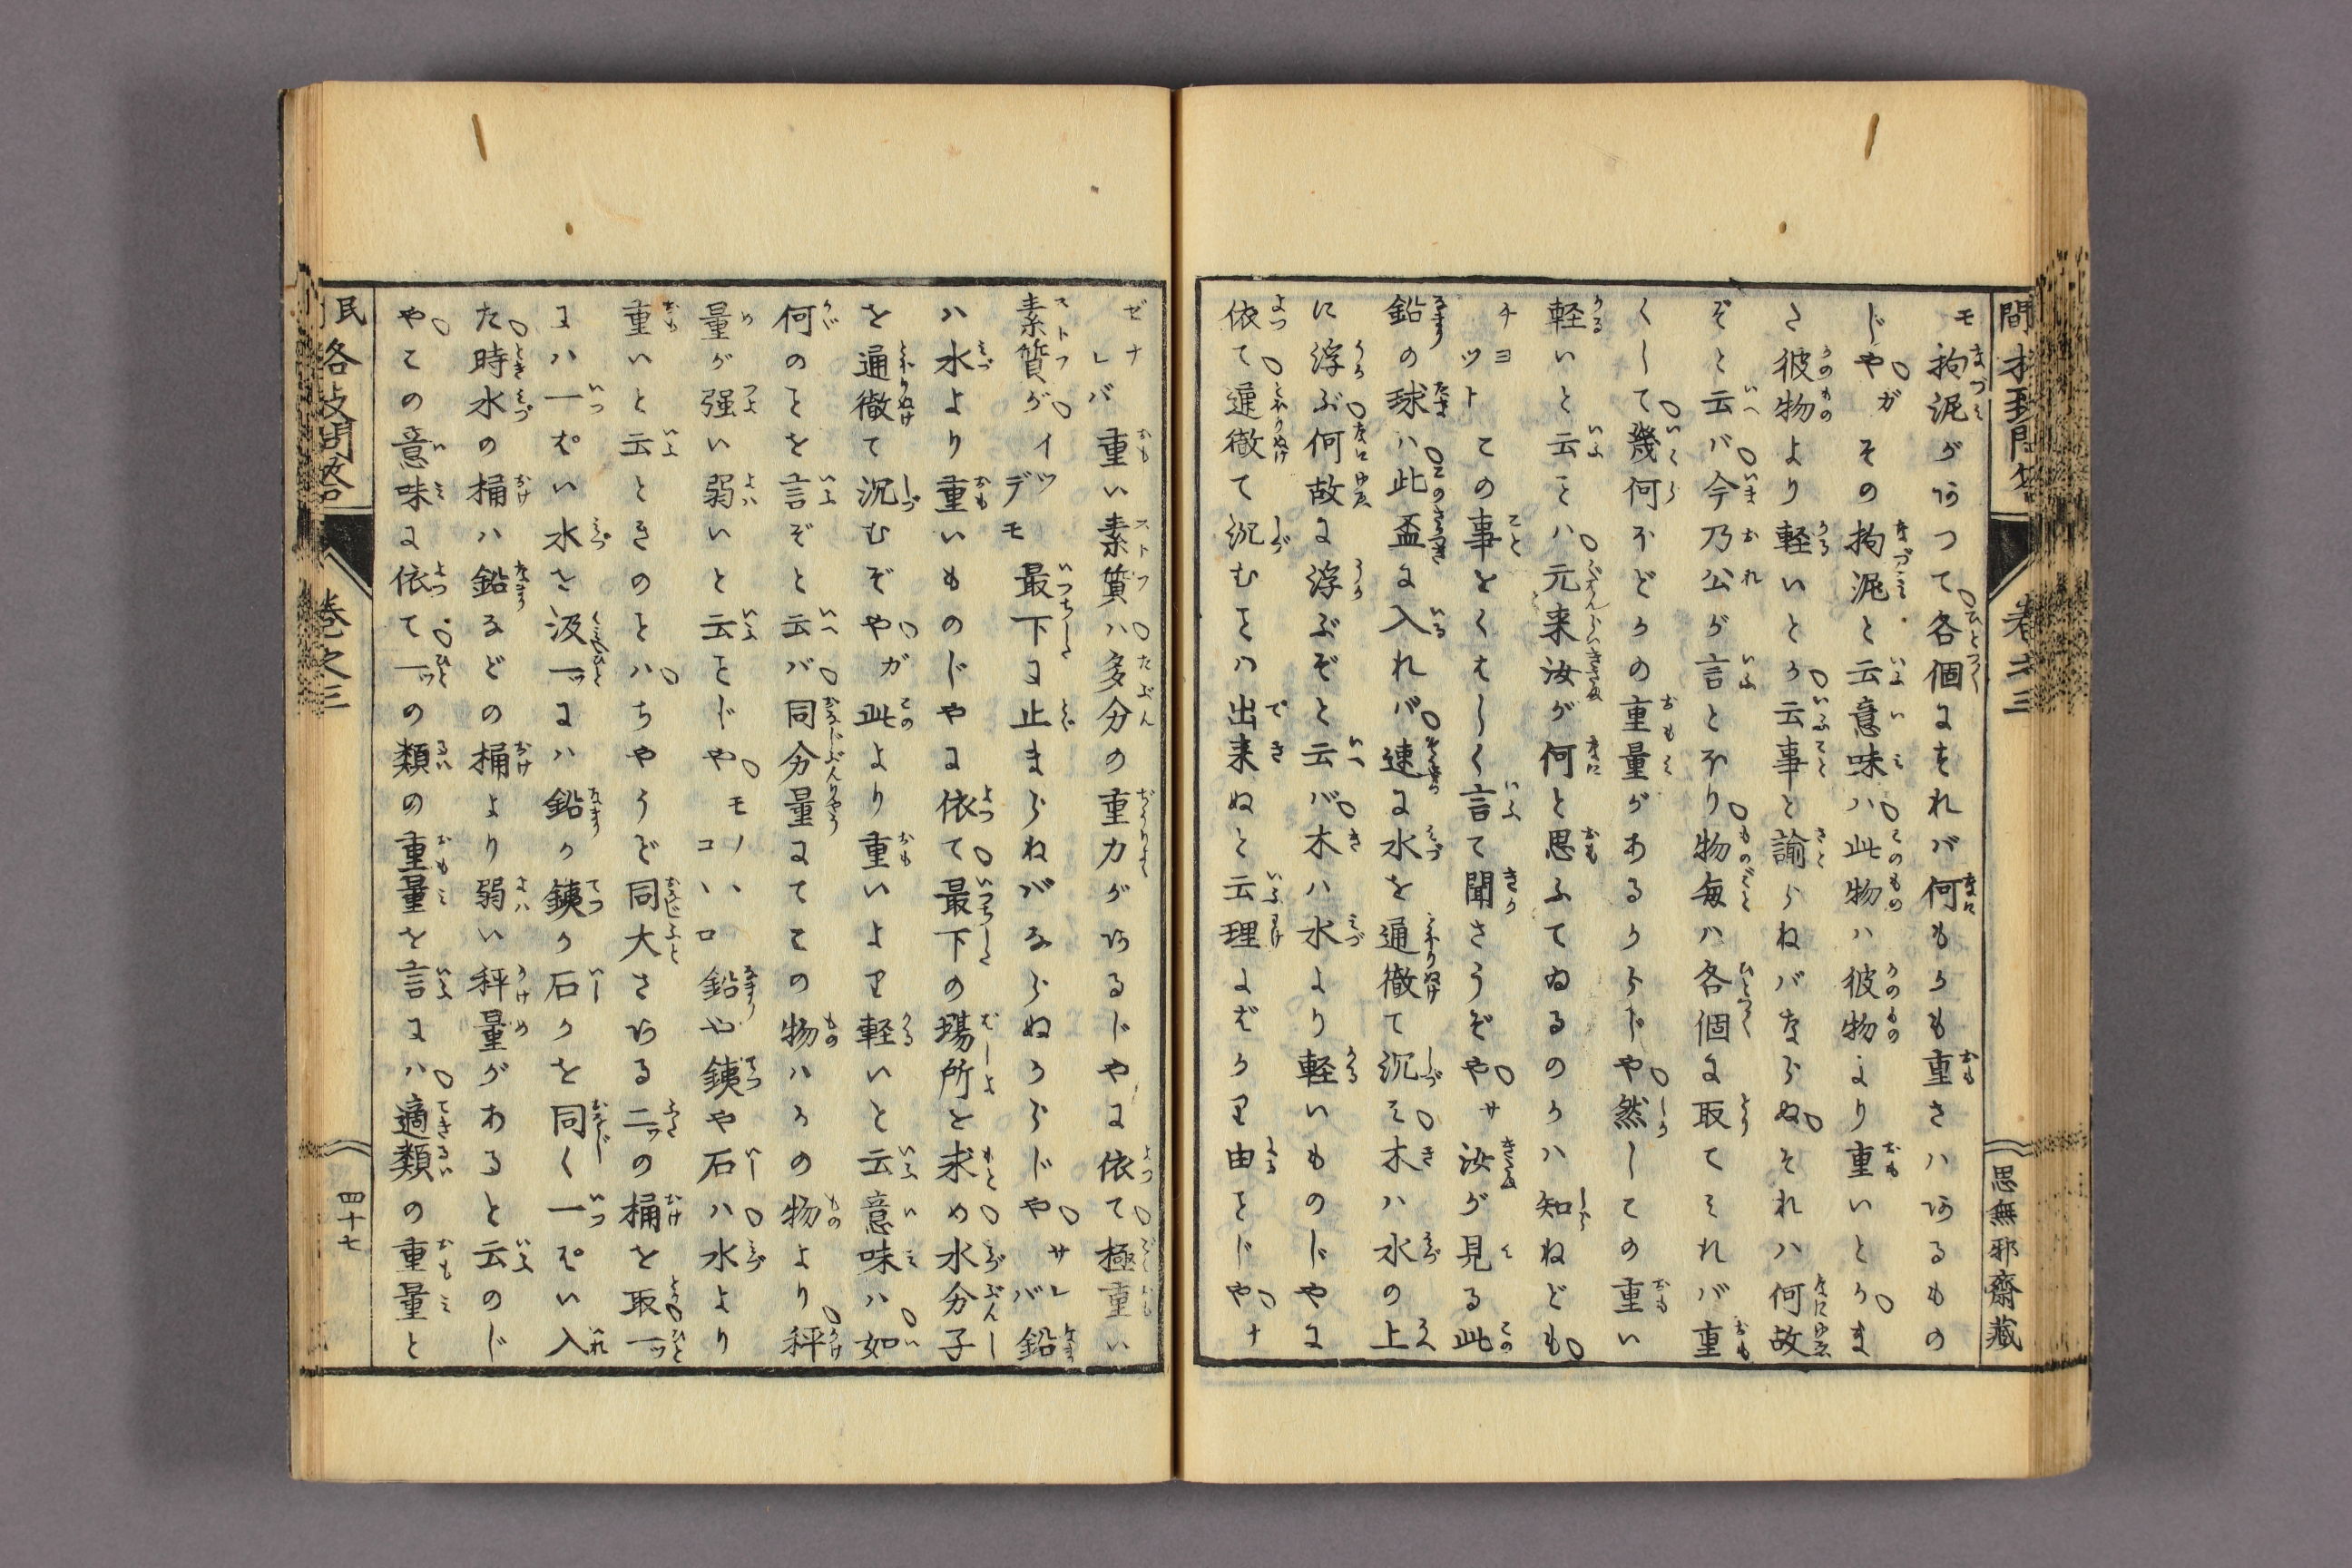 モ拘泥があつて各個にすれバ何もかも重さハあるもの
じやガその拘泥と云意味ハ此物ハ彼物より重いとかま
た彼物より軽いとか云事と諭らねバならぬそれハ何故
ぞと云バ今乃公が言とほり物毎ハ各個に取てみれバ重
くして幾何ほどかの重量があるからじや然してこの重い
軽いと云ことハ元来汝が何と思ふてゐるのかハ知ねども
チヨツトこの事をくはしく言て聞さうぞやサ汝が見る此
鉛の球ハ此盃に入れバ速に水を通徹て沉み木ハ水の上
に浮ぶ何故に浮ぶぞと云バ木ハ水より軽いものじやに
依て通徹て沉むことハ出来ぬと云理よばかり由ことじやナ
ゼナレバ重い素質ハ多分の重力があるじやに依て極重い
素質がイツデモ最下に止まらねバならぬからじやサレバ鉛
ハ水より重いものじやに依て最下の場所を求め水分子
を通徹て沉むぞやガ此より重いより軽いと云意味ハ如
何のことを言ぞと云バ同分量にてこの物ハかの物より秤
量が强い弱いと云ことじやモノハコヽロ鉛や銕や石ハ水より
重いと云ときのことハちやうど同大さある二ツの桶を取一ツ
にハ一ぱい水を汲一ツにハ鉛か銕か石かを同く一ぱい入
た時水の桶ハ鉛などの桶より弱い秤量があると云のじ
やこの意味に依て一ツの類の重量を言にハ適類の重量と
巻之三
思無邪齋藏
民
各攻問答
巻之三
四十七